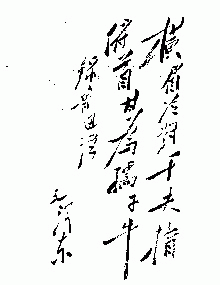 横眉冷对千夫指
俯首甘为孺子牛
鲁迅诗
毛泽东